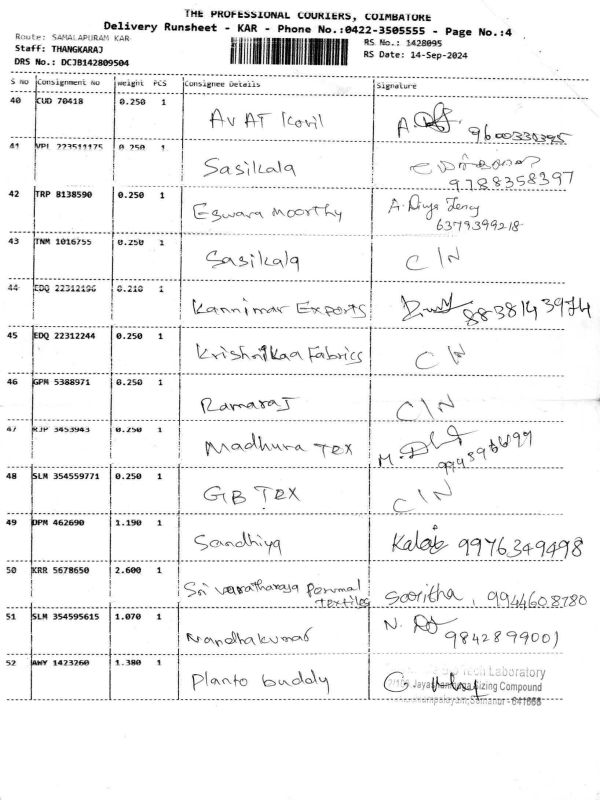 THE PROFESSIONAL COURIERS, COIMBATORE
Delivery Runsheet - KAR - Phone No.:0422-3505555 - Page No.:4
Route: SAMALAPURAM KAR
Staff: THANGKARAJ
DRS No.: DCJB142809504
RS No.: 1428095
RS Date: 14-Sep-2024
S no Consignment No weight PCS Consignee Details Signature
40 CUD 70418 0.250 1 AV AT Kovil A.
9600330395
41 VPL 223511175 0.250 1 Sasikala
9788358397
42 TRP 8138590 0.250 1 Eswara moorthy A. Divya Jency
6379399218
43 TNM 1016755 0.250 1 Sasikala C/N
44 EDQ 22312196 0.210 1 Kannimar Exports 8838143974
45 EDQ 22312244 0.250 1 Krishnikaa Fabrics C/N
46 GPM 5388971 0.250 1 Ramaraj C/N
47 RJP 3453943 0.250 1 Madhura Tex M.
48 SLM 354559771 0.250 1 GB TEX C/N
49 DPM 462690 1.190 1 Sandhiya Kalai 9976349498
50 KRR 5678650 2.600 1 Sri varatharaja Perumal
textiles Saritha, 9944608780
51 SLM 354595615 1.070 1 Nandhakumar N.
9842899001
52 AWY 1423260 1.380 1 Planto buddy
Tech Laboratory
Sizing Compound
Somanur - 641668